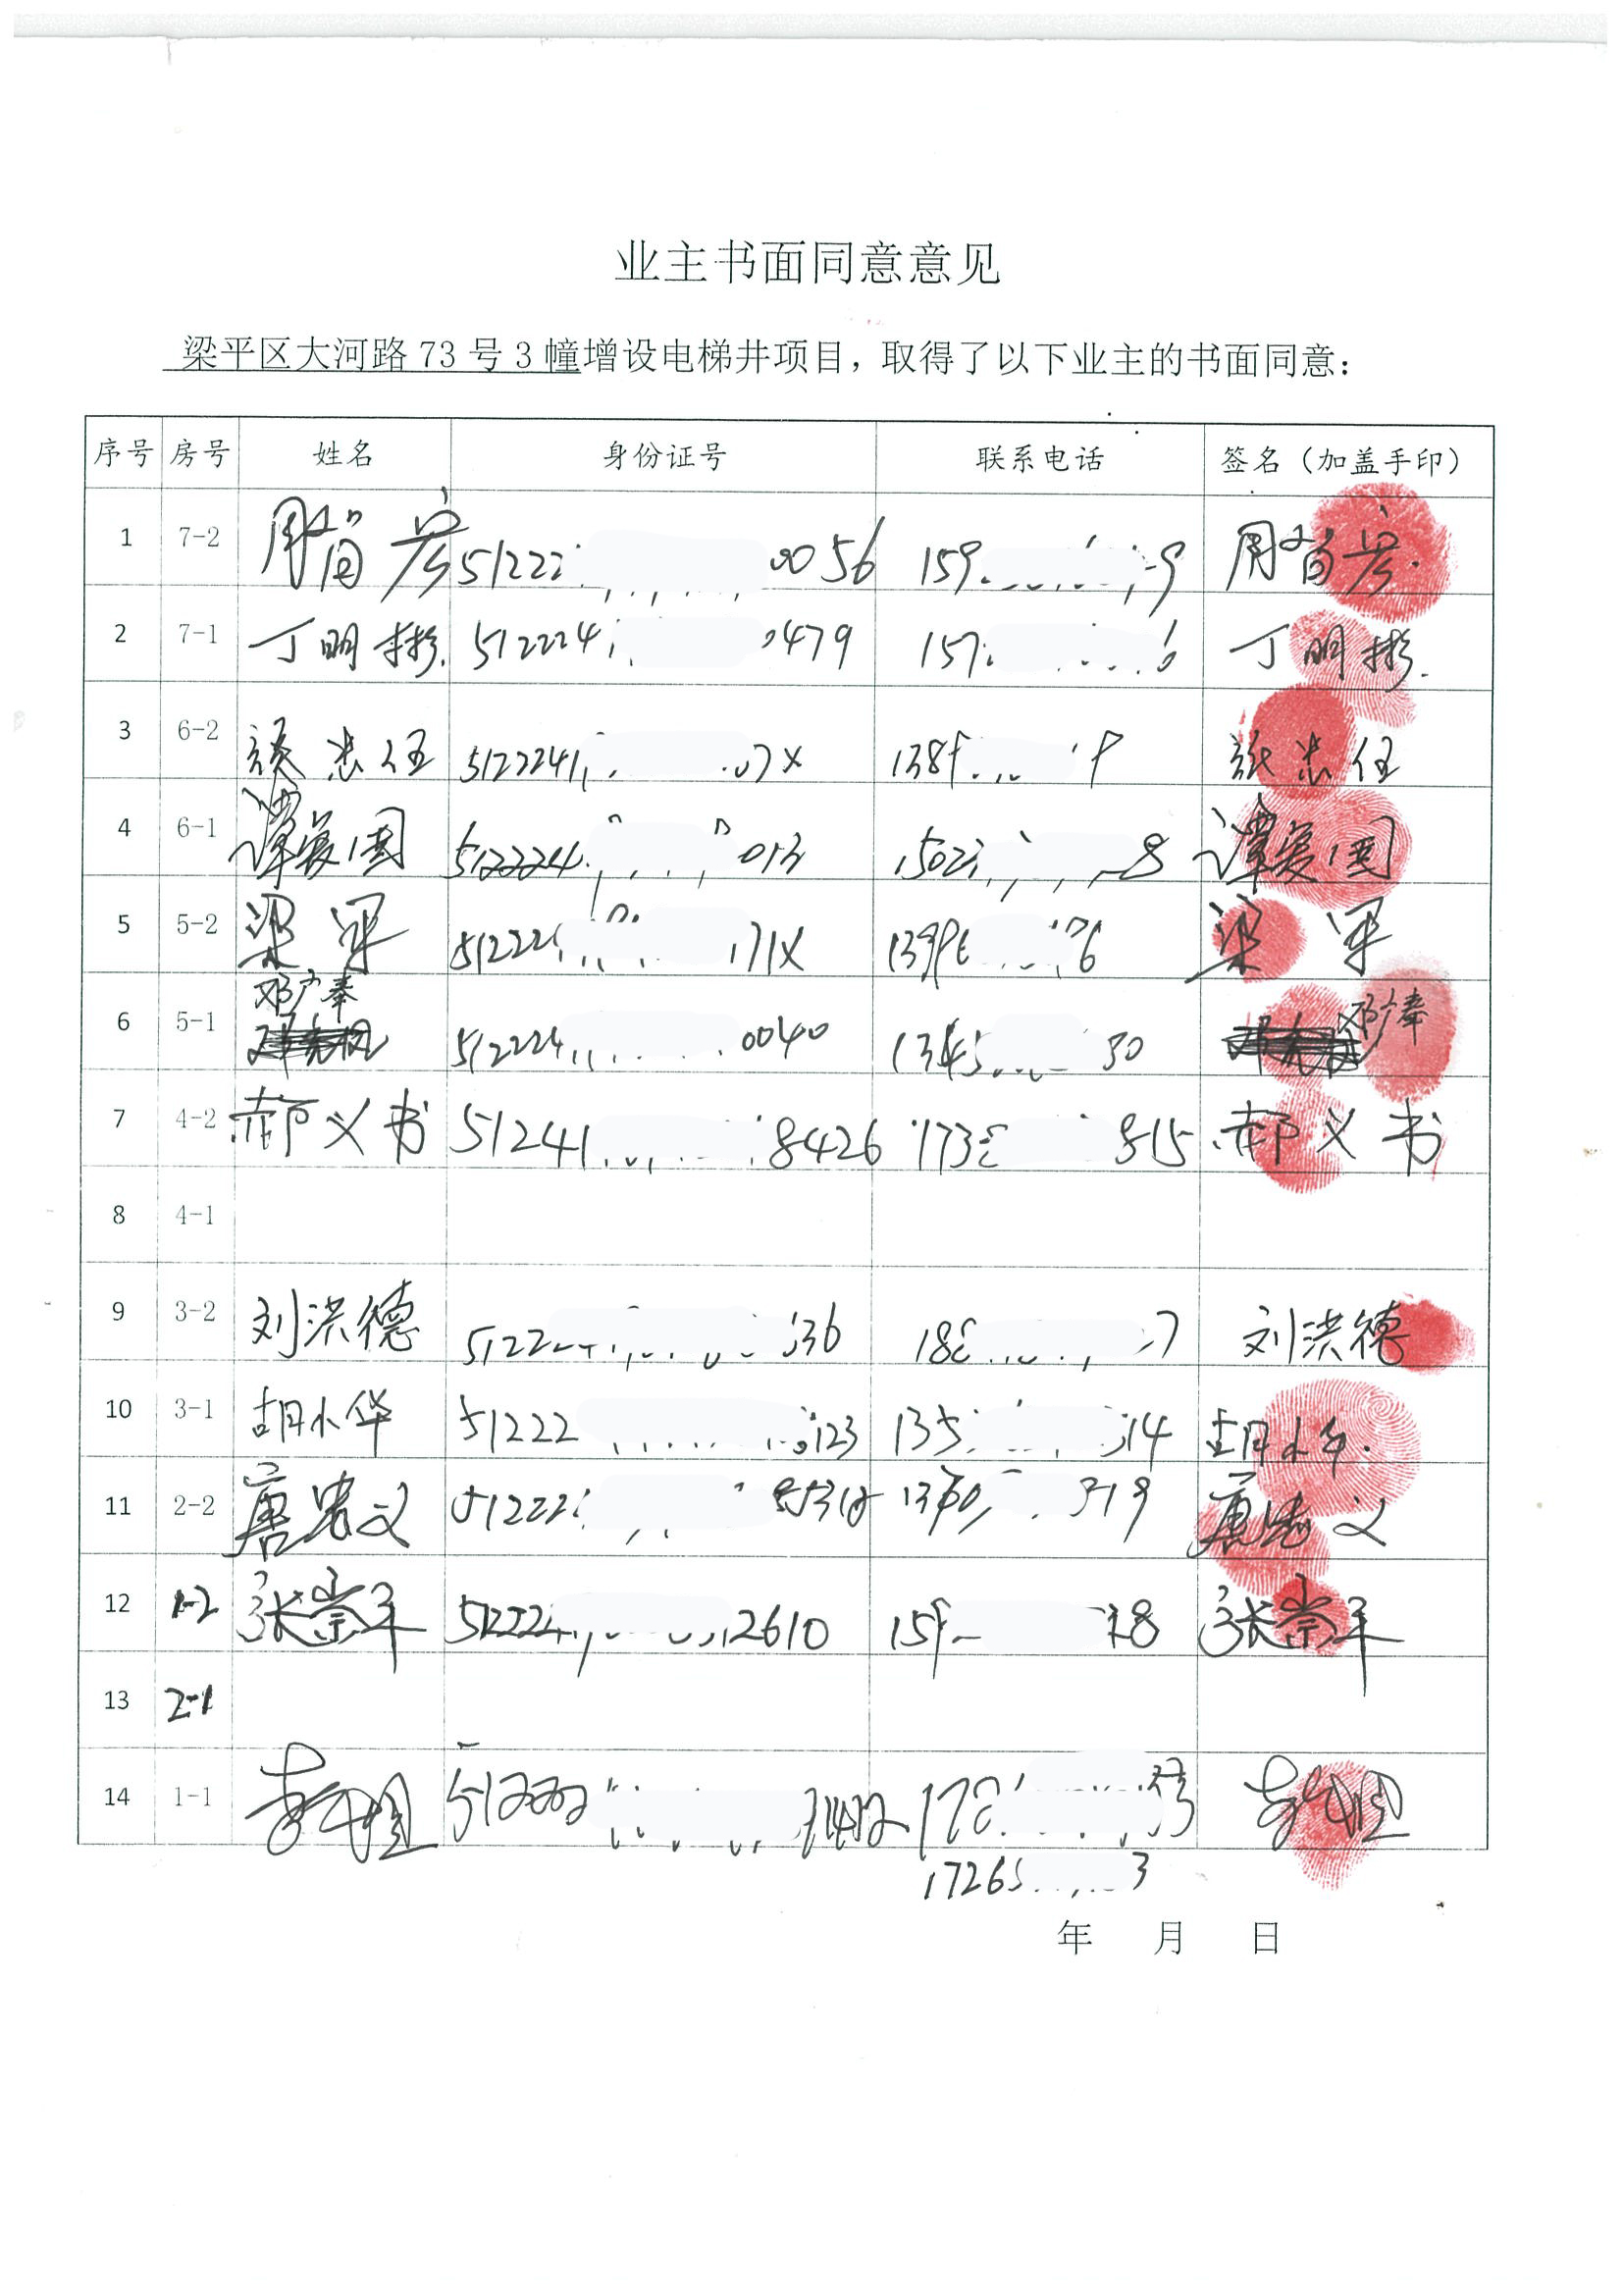 业主书面同意意见
梁平区大河路 73 号 3 幢增设电梯井项目，取得了以下业主的书面同意：
序号 房号 姓名 身份证号 联系电话 签名（加盖手印）
1 7-2 51222 0056 159 9
2 7-1 丁明彬. 512224 0479 157 6 丁明彬.
3 6-2 5122241 07X 138
4 6-1 谭爰国 512224 013 15023 8 谭爰国
5 5-2 梁军 51222 71X 139 76 梁军
6 5-1 邓广奉 512224 0040 1345 30 邓广奉
7 4-2 郝义书 51241 8426 173 815 郝义书
8 4-1
9 3-2 刘洪德 5122 36 188 7 刘洪德
10 3-1 胡小华 51222 123 135 14 胡小华.
11 2-2 唐忠义 51222 1360 319 唐忠义
12 1-2 张崇平 51222 2610 159 8 张崇平
13 2-1
14 1-1 51222 3
17265 3
年 月 日